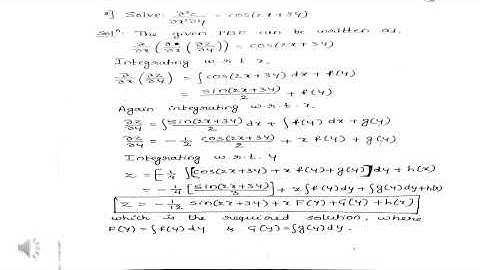 8] Solve ∂³z/∂x²∂y = cos(2x+3y)
Solⁿ. The given PDE can be written as.
∂/∂x (∂/∂x (∂z/∂y)) = cos(2x+3y)
Integrating w.r.t. x.
∂/∂x (∂z/∂y) = ∫cos(2x+3y) dx + f(y)
= sin(2x+3y)/2 + f(y)
Again integrating w.r.t. x.
∂z/∂y = ∫ sin(2x+3y)/2 dx + ∫ f(y) dx + g(y)
∂z/∂y = - 1/2 cos(2x+3y)/2 + x f(y) + g(y)
Integrating w.r.t. y
z = [-1/4 ∫[cos(2x+3y) + x f(y) + g(y)] dy + h(x)
= -1/4 [sin(2x+3y)/3] + x∫f(y)dy + ∫g(y)dy + h(x)
z = -1/12 sin(2x+3y) + x F(y) + G(y) + h(x)
which is the required solution, where
F(y) = ∫f(y)dy & G(y) = ∫g(y)dy.